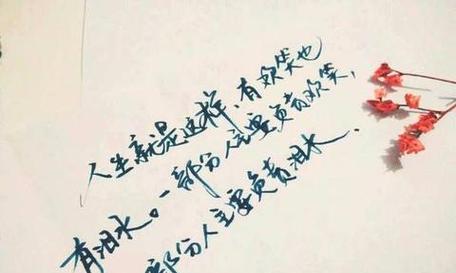 人生就是这样，有欢笑也
有泪水。一部份人主要负责欢笑，
部份人主要负责泪水．